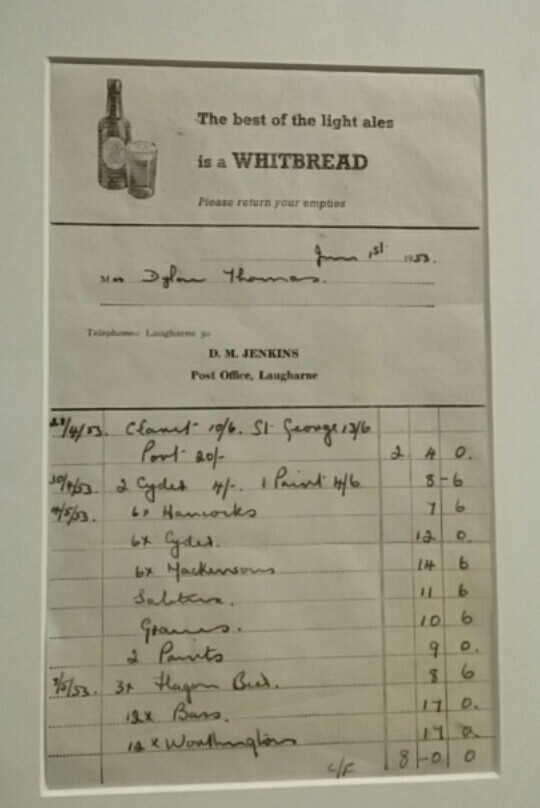 The best of the light ales
is a WHITBREAD
Please return your empties
June 1st 1953.
Mrs Dylan Thomas.
Telephone: Laugharne 30
D. M. JENKINS
Post Office, Laugharne
Claret 10/6. St George 13/6
Port 20/- 2 4 0.
30/4/53. 2 Cyder 4/-. 1 Paint 4/6 8-6
4/5/53. 6x Hancocks 7 6
6x Cyder. 12 0.
6x Mackensons 14 6
11 6
10 6
2 Paints 9 0.
3x Flagon 8 6
12x Bass. 17 0.
12x Worthingtons 17 0.
C/F 8-0 0